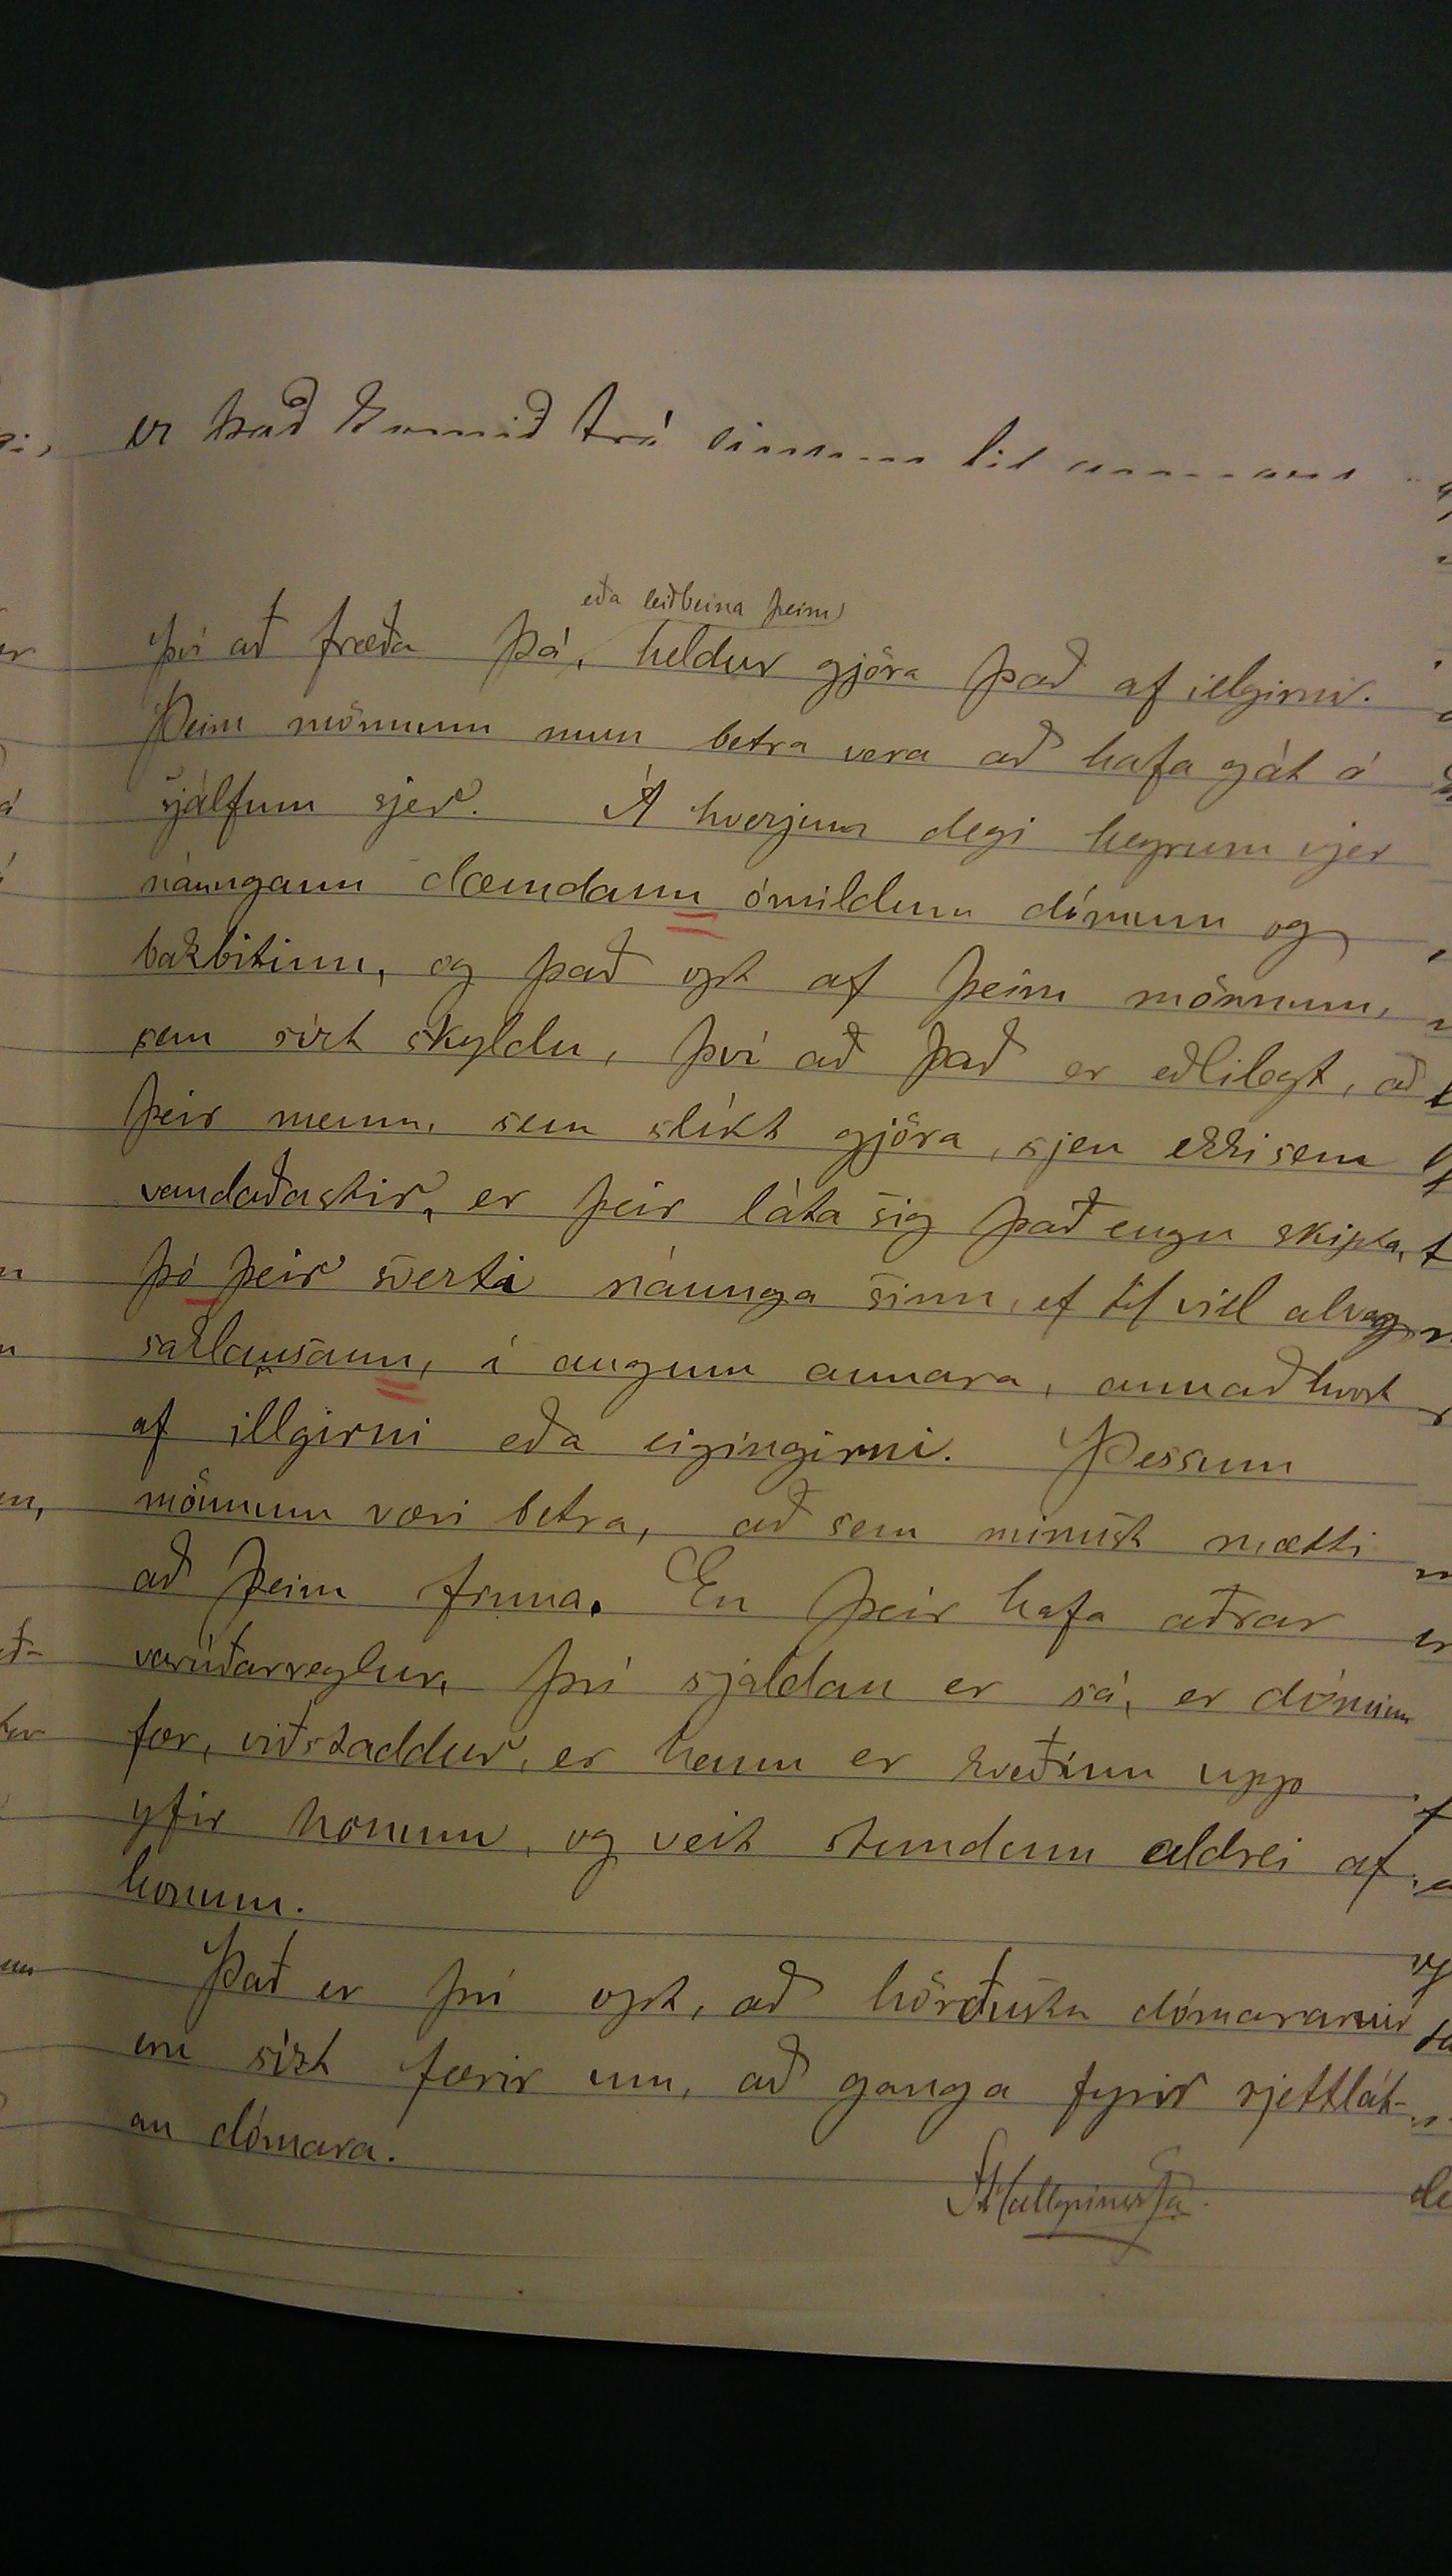 er það komið frá einum til annars
eða leiðbeina þeim
því að fræða þá, heldur gjöra það af illgirni.
Þeim mönnum mun betra vera að hafa gát á
sjálfum sjer. Á hverjum degi heyrum vjer
náungann dæmdann ómildum dómum og
bakbitinn, og það opt af þeim mönnum,
sem sízt skyldu, því að það er eðlilegt, að
þeir menn, sem slíkt gjöra, sjeu ekki sem
vandaðastir, er þeir láta sig það engu skipta,
þó þeir sverti náunga sinn, ef til vill alveg
saklausann, í augum annara, annaðhvort
af illgirni eða eigingirni. Þessum
mönnum væri betra, að sem minnst mætti
að þeim finna. En þeir hafa aðrar
varúðarreglur, því sjaldan er sá, er dóminn
fær, viðstaddur, er hann er kveðinn upp
yfir honum, og veit stundum aldrei af
honum.
Það er því opt, að hörðustu dómararnir
eru sízt færir um, að ganga fyrir rjettlát-
an dómara.